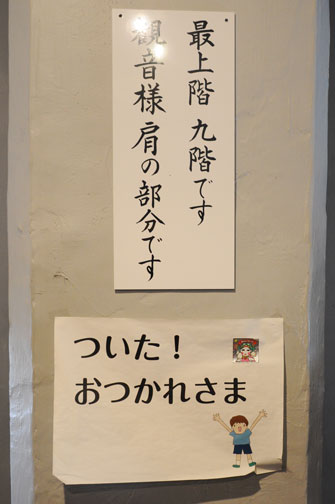 最上階 九階です
観音様 肩の部分です
ついた！
おつかれさま